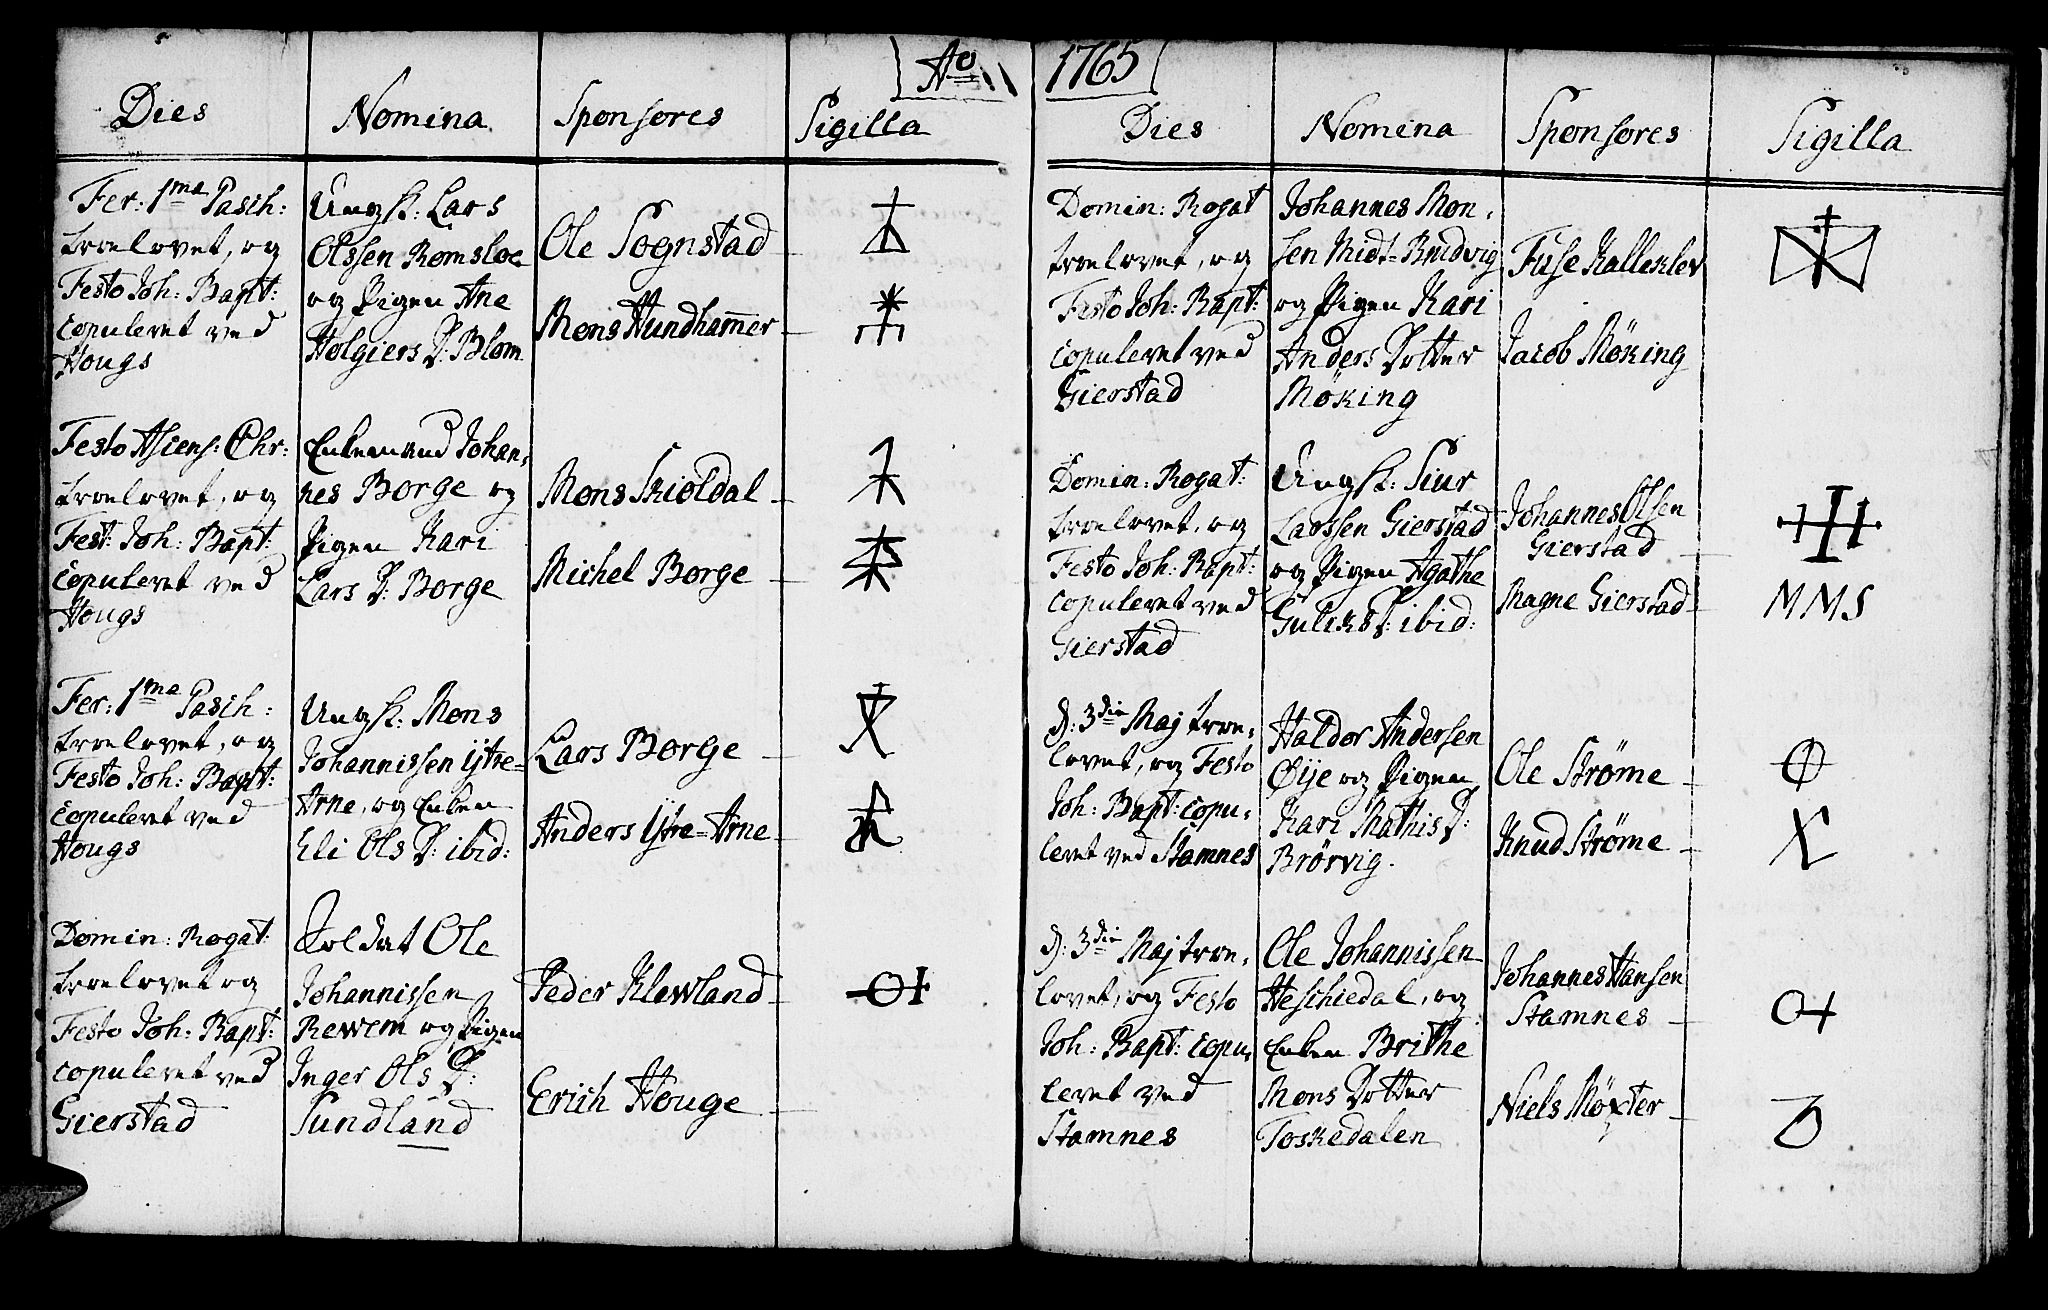 Ao 1765
Dies Nomina Sponsores Sigilla
Fer: 1ma Pasch:
troelovet, og
Festo Joh: Bapt:
copuleret ved
Hougs
Ungk: Lars
Olssen Romsloe
og Pigen Ane
Holgiers D: Blom
Ole Sognstad
Mons Hundham̄er
Festo Asiens: Chr:
troelovet, og
Fest: Joh: Bapt:
copuleret ved
Hougs
Enkemand Johan,
nes Borge og
Pigen Kari
Lars D: Borge
Mons Skioldal
Michel Borge
Fer: 1ma Pasch:
troelovet, og
Festo Joh: Bapt:
copuleret ved
Hougs
Ungk: Mons
Johannissen ijtre=
Arne, og Enken
Eli Ols D: ibid:
Lars Borge
Anders ijtre=Arne
Domin: Rogat:
troelovet og
Festo Joh: Bapt:
copuleret ved
Gierstad
Soldat Ole
Johannissen
Rewem og Pigen
Inger Ols D:
Sundland
Peder Klewland
Erich Houge
Dies Nomina Sponsores Sigilla
Domin: Rogat
troelovet, og
Festo Joh: Bapt:
copuleret ved
Gierstad
Johannes Mon,
sen Midt=Brudvig
og Pigen Kari
Anders Dotter
Möking
Fuse Kalleklev
Jacob Möking
Domin: Rogat:
troelovet, og
Festo Joh: Bapt:
copuleret ved
Gierstad
Ungk: Siur
Larssen Gierstad
og Pigen Agathe
Guliks D: ibid:
Johannes Olsen
Gierstad
Magne Gierstad
MMS
d: 3die Maj troe,
lovet, og Festo
Joh: Bapt: copu,
leret ved Stamnes
Haldor Andersen
Øije og Pigen
Kari Mathis D:
Brörvig.
Ole Ströme
Knud Ströme
d: 3die Maj troe,
lovet, og Festo
Joh: Bapt: copu,
leret ved
Stamnes
Ole Johannissen
Heschiedal, og
Enken Brithe
Mons Dotter
Toskedalen
Johannes Hansen
Stamnes
Niels Möxter